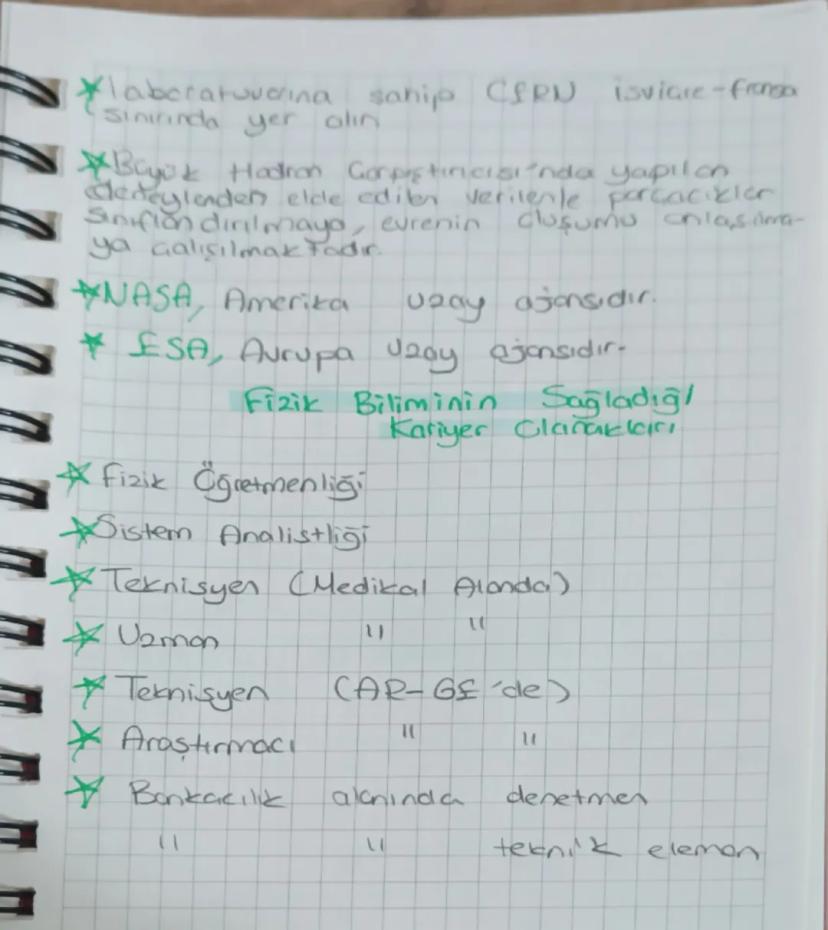 ★ laboratuvarına sahip CERN isviçre-fransa
sınırında yer alır
★ Büyük Hadron Çarpıştırıcısı'nda yapılan
deneylerden elde edilen verilerle parçacıklar
sınıflandırılmaya, evrenin oluşumu anlaşılma-
ya çalışılmaktadır.
★ NASA, Amerika uzay ajansıdır.
★ ESA, Avrupa uzay ajansıdır.
Fizik Biliminin Sağladığı
Kariyer Olanakları
★ Fizik Öğretmenliği
★ Sistem Analistliği
★ Teknisyen (Medikal Alanda)
★ Uzman " "
★ Teknisyen (AR-GE'de)
★ Araştırmacı " "
★ Bankacılık alanında denetmen
" " teknik eleman